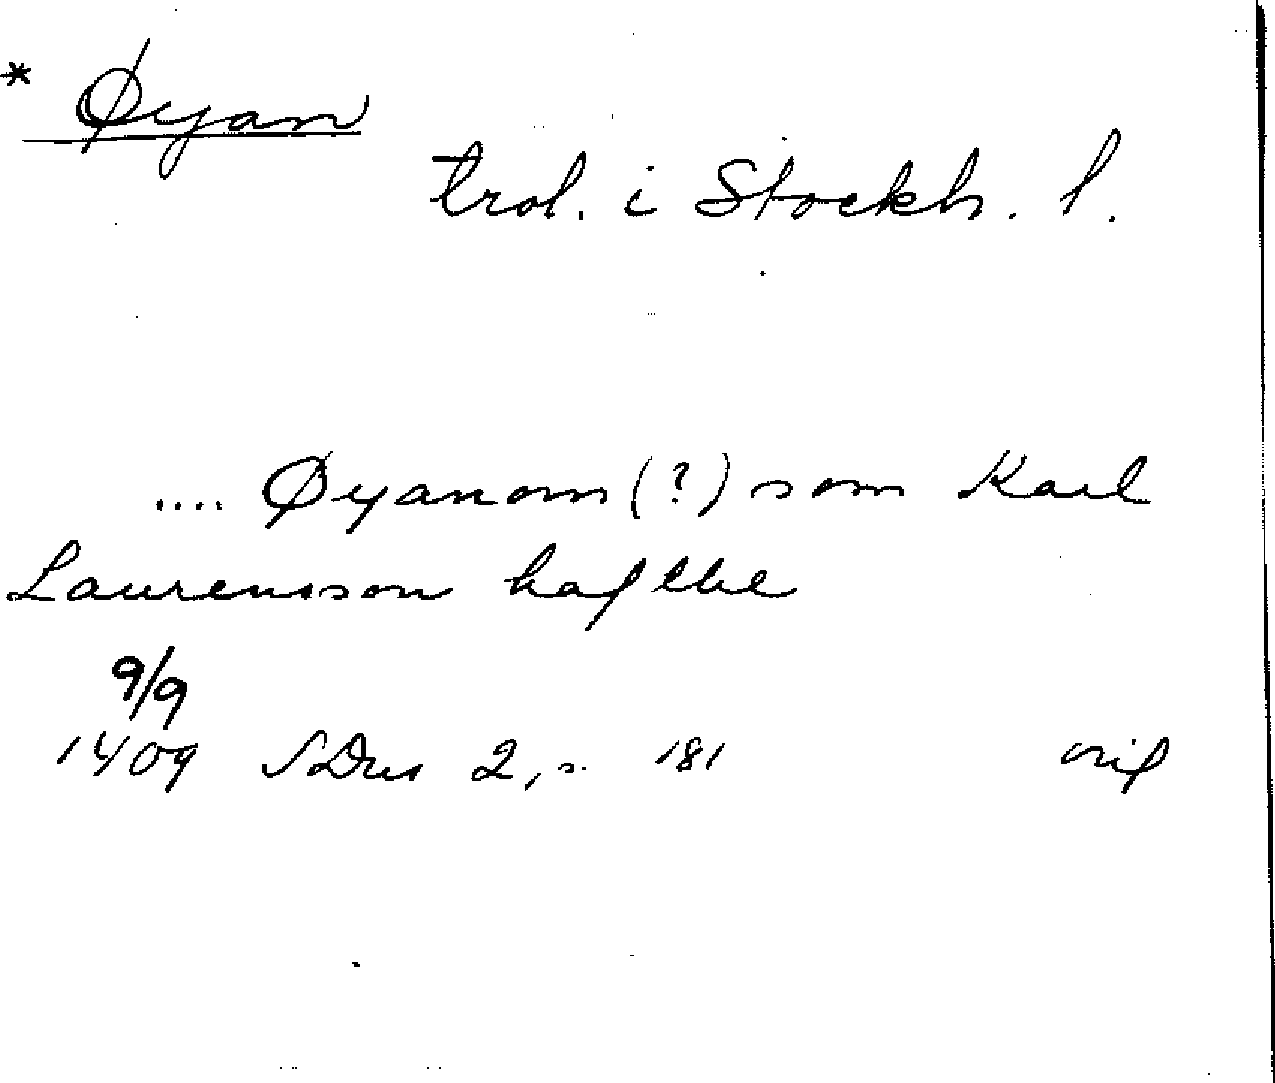 * Øyan
trol. i Stockh. l.
.... Øyanom (?) som Karl
Laurensson hafthe
9/9
1409 SDns 2, s. 181 orig